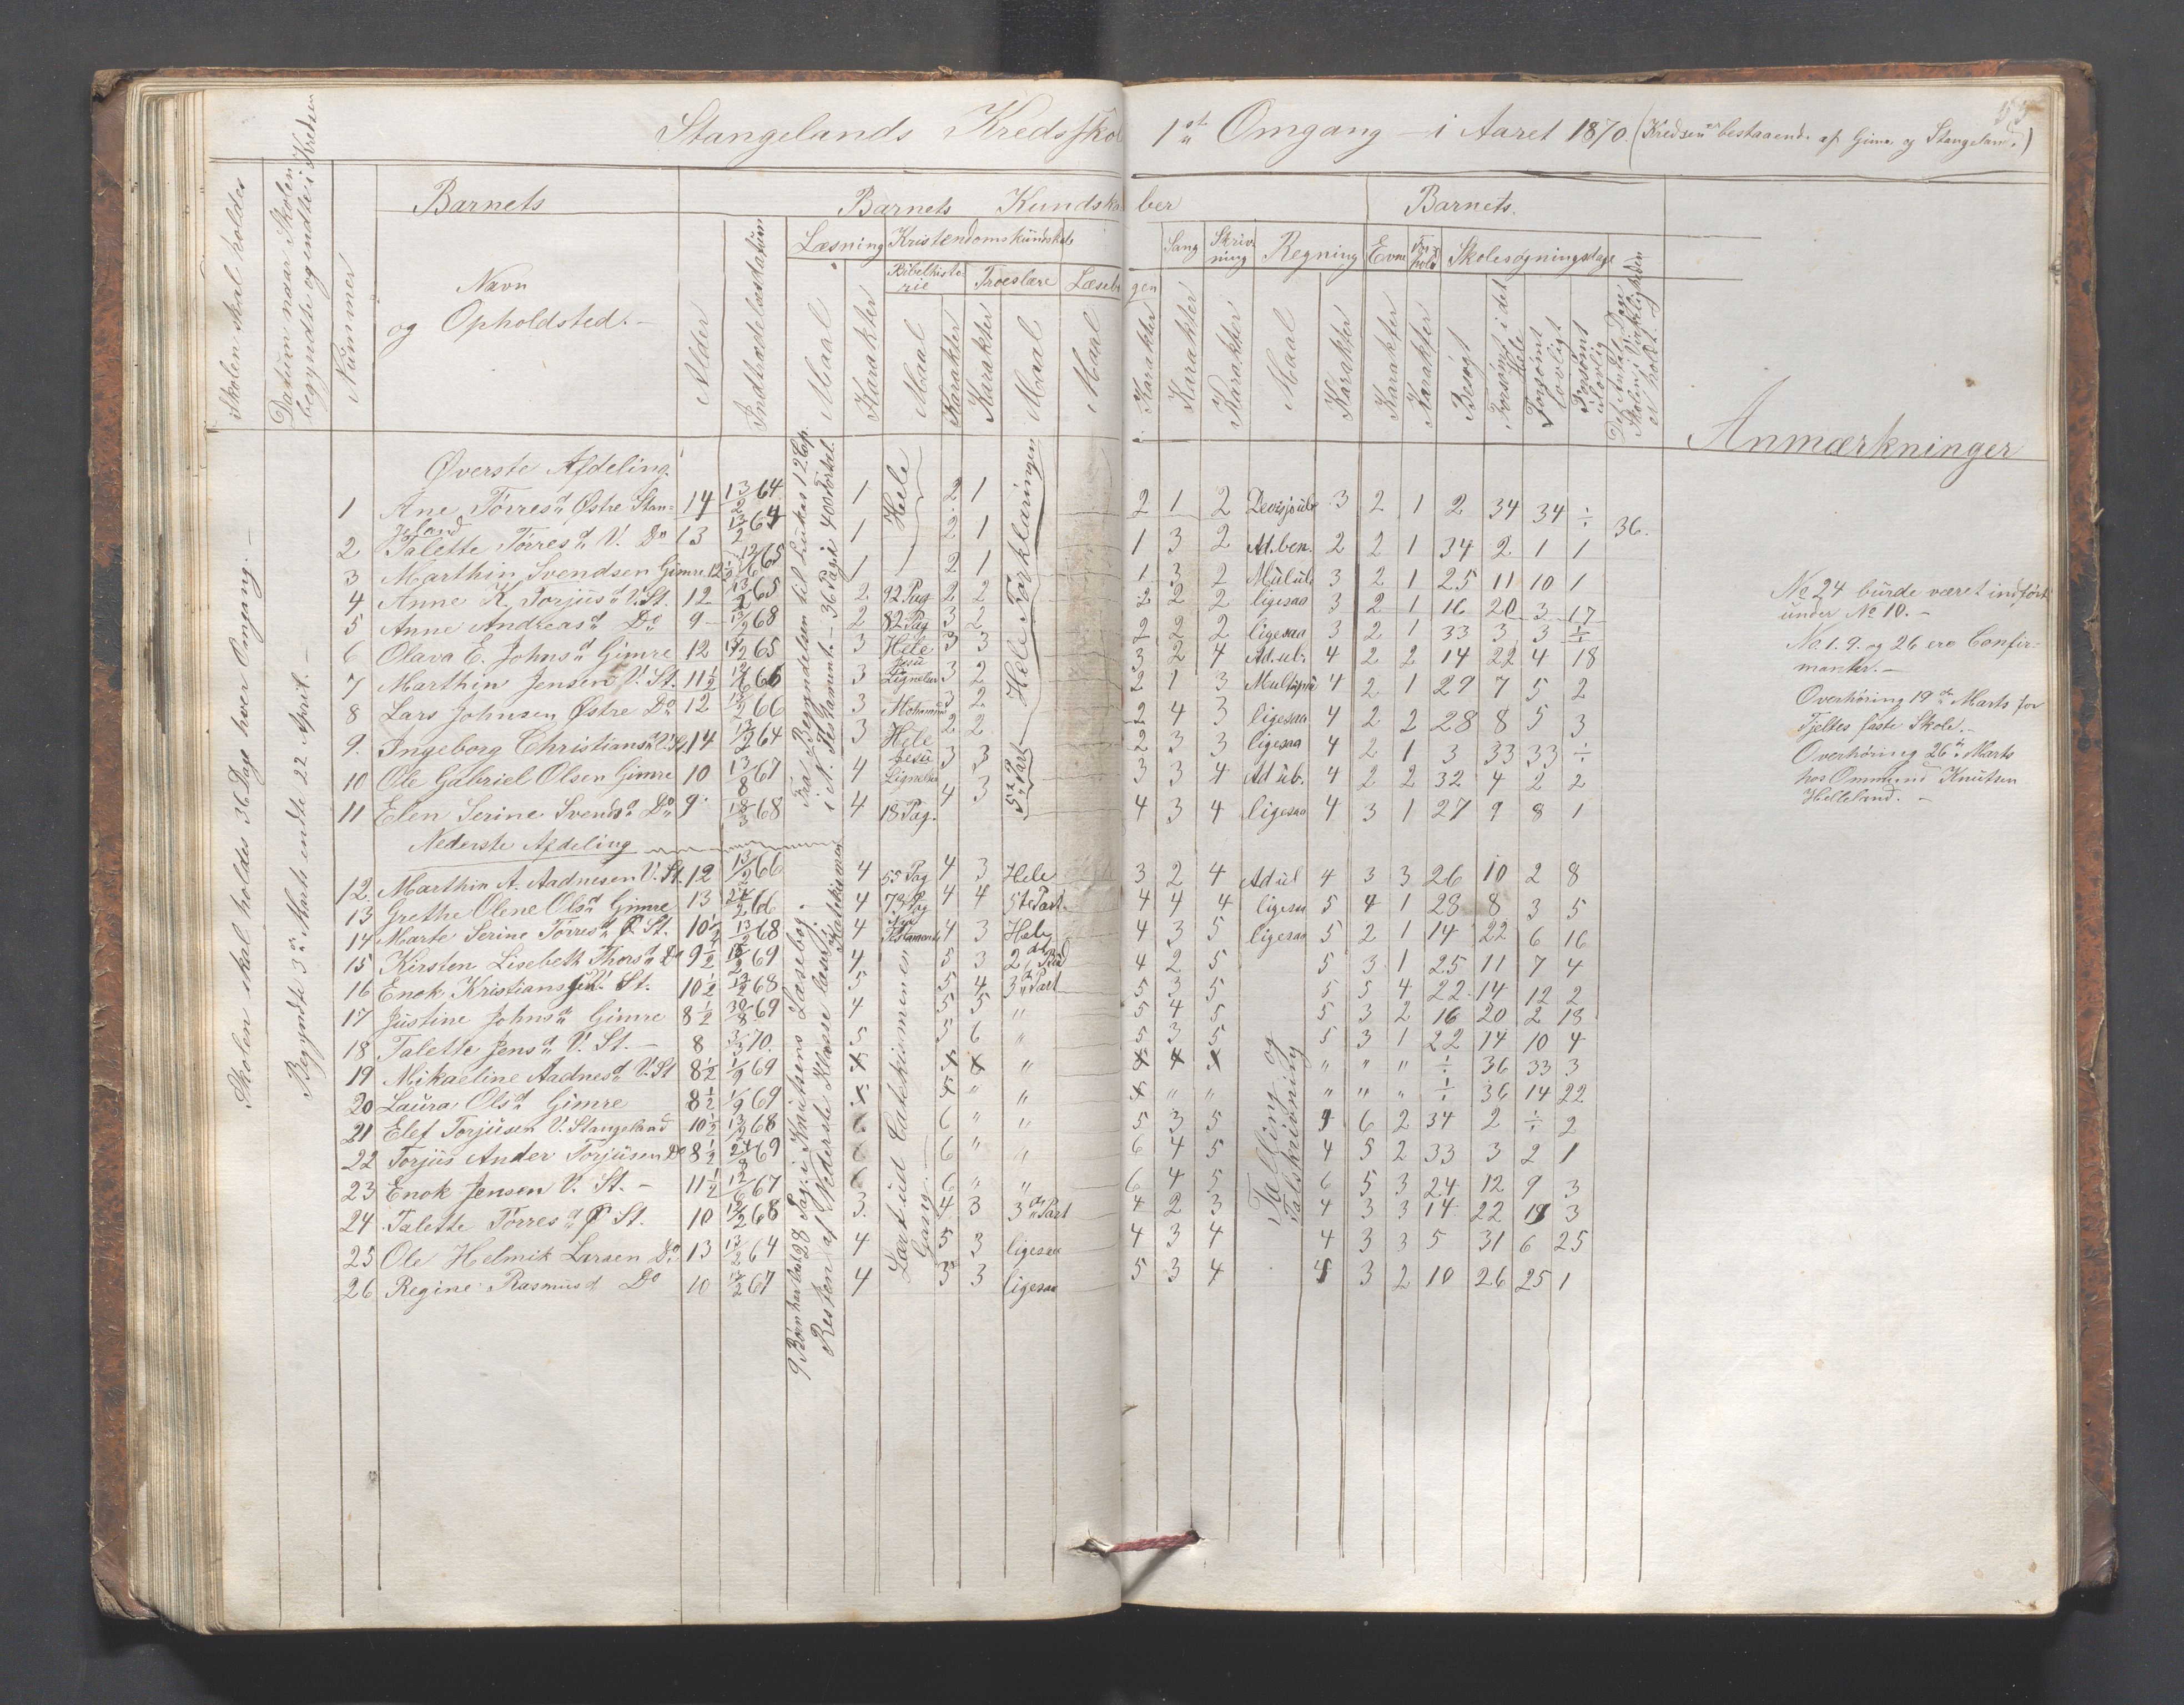 Stangelands Kredsskole 1ste Omgang i Aaret 1870. (Kredsen er bestaaende af Gimre og Stangeland.)
Skolen skal holdes
Datum naar Skolen begyndte og endte i Kredsen
Nummer
Barnets
Navn
og Opholdsted.
Barnets Kundskaber
Barnets.
Alder
Indtrædelsesdatum
Læsning
Kristendomskundskab
Bibelhistorie
Troeslære
Maal
Karakter
Maal
Karakter
Karakter
Maal
Maal
Karakter
Sang
Karakter
Skrivning
Karakter
Regning
Maal
Karakter
Evne
Karakter
Forhold
Karakter
Skolesøgningsdage
Besøgt
Forsømt i det Hele
Forsømt lovligt
Forsømt ulovlig
Det Antal Dage Skolen i Virkeligheden er holdt.
Anmærkninger
Skolen skal holdes 36 Dage hver Omgang.
Begyndte 3die Marts endte 22 April.
Øverste Afdeling.
1 Ane Torresd. Østre Stangeland 14 13/2 64 1 Hele 2 1 2 1 2 3 2 1 2 34 34 ÷ 36.
2 Talette Torresd. V. Do 13 13/2 64 1 2 1 1 3 2 Ad. ben. 2 2 1 34 2 1 1
3 Marthin Svendsen Gimre 12 1/2 12/6 65 1 2 1 1 3 2 Mul ub. 3 2 1 25 11 10 1
4 Anne K. Torjusd. V. St. 12 13/2 65 2 92 Pag 2 2 2 2 2 ligesaa 3 2 1 16 20 3 17
5 Anne Andreasd. Do 9 13/2 68 2 82 Pag 3 2 2 2 2 ligesaa 3 2 1 33 3 3 ÷
6 Olava E. Johnsd. Gimre 12 65 3 Hele 3 3 3 2 4 Ad. ub. 4 2 2 14 22 4 18
7 Marthin Jensen V. St. 11 1/2 12/6 66 3 Jesu Lignelser 3 2 2 1 3 4 2 1 29 7 5 2
8 Lars Johnsen Østre Do 12 13/2 66 3 3 2 2 4 3 ligesaa 4 2 2 28 8 5 3
9. Ingeborg Christiansd. V. St. 14 13/2 64 3 Hele 2 2 2 3 3 ligesaa 4 2 1 3 33 33 ÷
10 Ole Gabriel Olsen Gimre 10 13/8 67 4 Jesu Lignelser 3 3 3 3 4 Ad ub. 4 2 2 32 4 2 2
11 Elen Serine Svendsd. Do 9 18/3 68 4 18 Pag. 4 3 4 3 4 ligesaa 4 3 1 27 9 8 1
Fra Begyndelsen til Lukas 12 Cap. i N. Testament.
Hele Forklaringen
5te Part
Nederste Afdeling
12. Marthin A. Aadnesen V. St. 12 13/2 66 4 55 Pag 4 3 Hele 3 2 4 Ad ub 4 3 3 26 10 2 8
13 Grethe Olene Olsd. Gimre 13 66 4 73 Pag 4 4 5te Part. 4 4 4 ligesaa 5 4 1 28 8 3 5
14 Marte Serine Torresd. Ø St. 10 1/2 13/2 68 4 Nye Testamente 4 3 Hele 4 3 5 ligesaa 5 2 1 14 22 6 16
15 Kirsten Lisebeth Thorsd. Do 9 1/2 69 4 5 3 2 4 2 5 5 3 1 25 11 7 4
16 Enok Kristiansen V. St. 10 1/2 13/2 68 5 5 4 3die Part 5 3 5 5 5 4 22 14 12 2
17 Justine Johnsd. Gimre 8 1/2 30/8 69 4 5 5 " 5 4 5 5 3 2 16 20 2 18
18 Talette Jensd. V. St. 8 3/3 70. 5 5 6 " 5 3 5 5 3 1 22 14 10 4
19 Mikaeline Aadnesd. V. St 8 1/2 1/9 69 x x x " x x x " " " ÷ 36 33 3
20 Laura Olsd. Gimre 8 1/2 1/9 69 x x " " x " " " " " ÷ 36 14 22
21 Elef Torjusen V. Stangeland 10 1/2 13/2 68 6 6 " " 5 3 5 6 2 34 2 ÷ 2
22 Torjus Ander Torjusen Do 8 1/2 24/8 69 6 6 " " 6 4 5 4 5 2 33 3 2 1
23 Enok Jensen V. St. 11 1/2 12/6 67 6 6 " " 6 4 5 6 5 3 24 12 9 3
24 Talette Torresd. Ø St. 10 13/2 68 3. 4 3 3die Part 4 2 3 4 3 3 14 22 19 3
25 Ole Helmik Larsen Do 13 13/2 64 4 5 3 ligesaa 4 3 4 4 3 3 5 31 6 25
26 Regine Rasmusd. Do 10 13/2 67 4 3 3 ligesaa 5 3 4 3 2 10 26 25 1
9 Børn har læst 28 Pag. i Knutsens Læsebog.
Resten af Nederste Klasse læste i Katekismen
Lært ud Catekismen en Gang.
Tælling og Talskrivning
No 24 burde været indført
under No 10.
No. 1. 9. og 26 ere Confir-
manter.
Overhøring 19de Marts for
Tjeltes faste Skole.
Overhøring 26de Marts
hos Ommund Knutsen
Helleland.